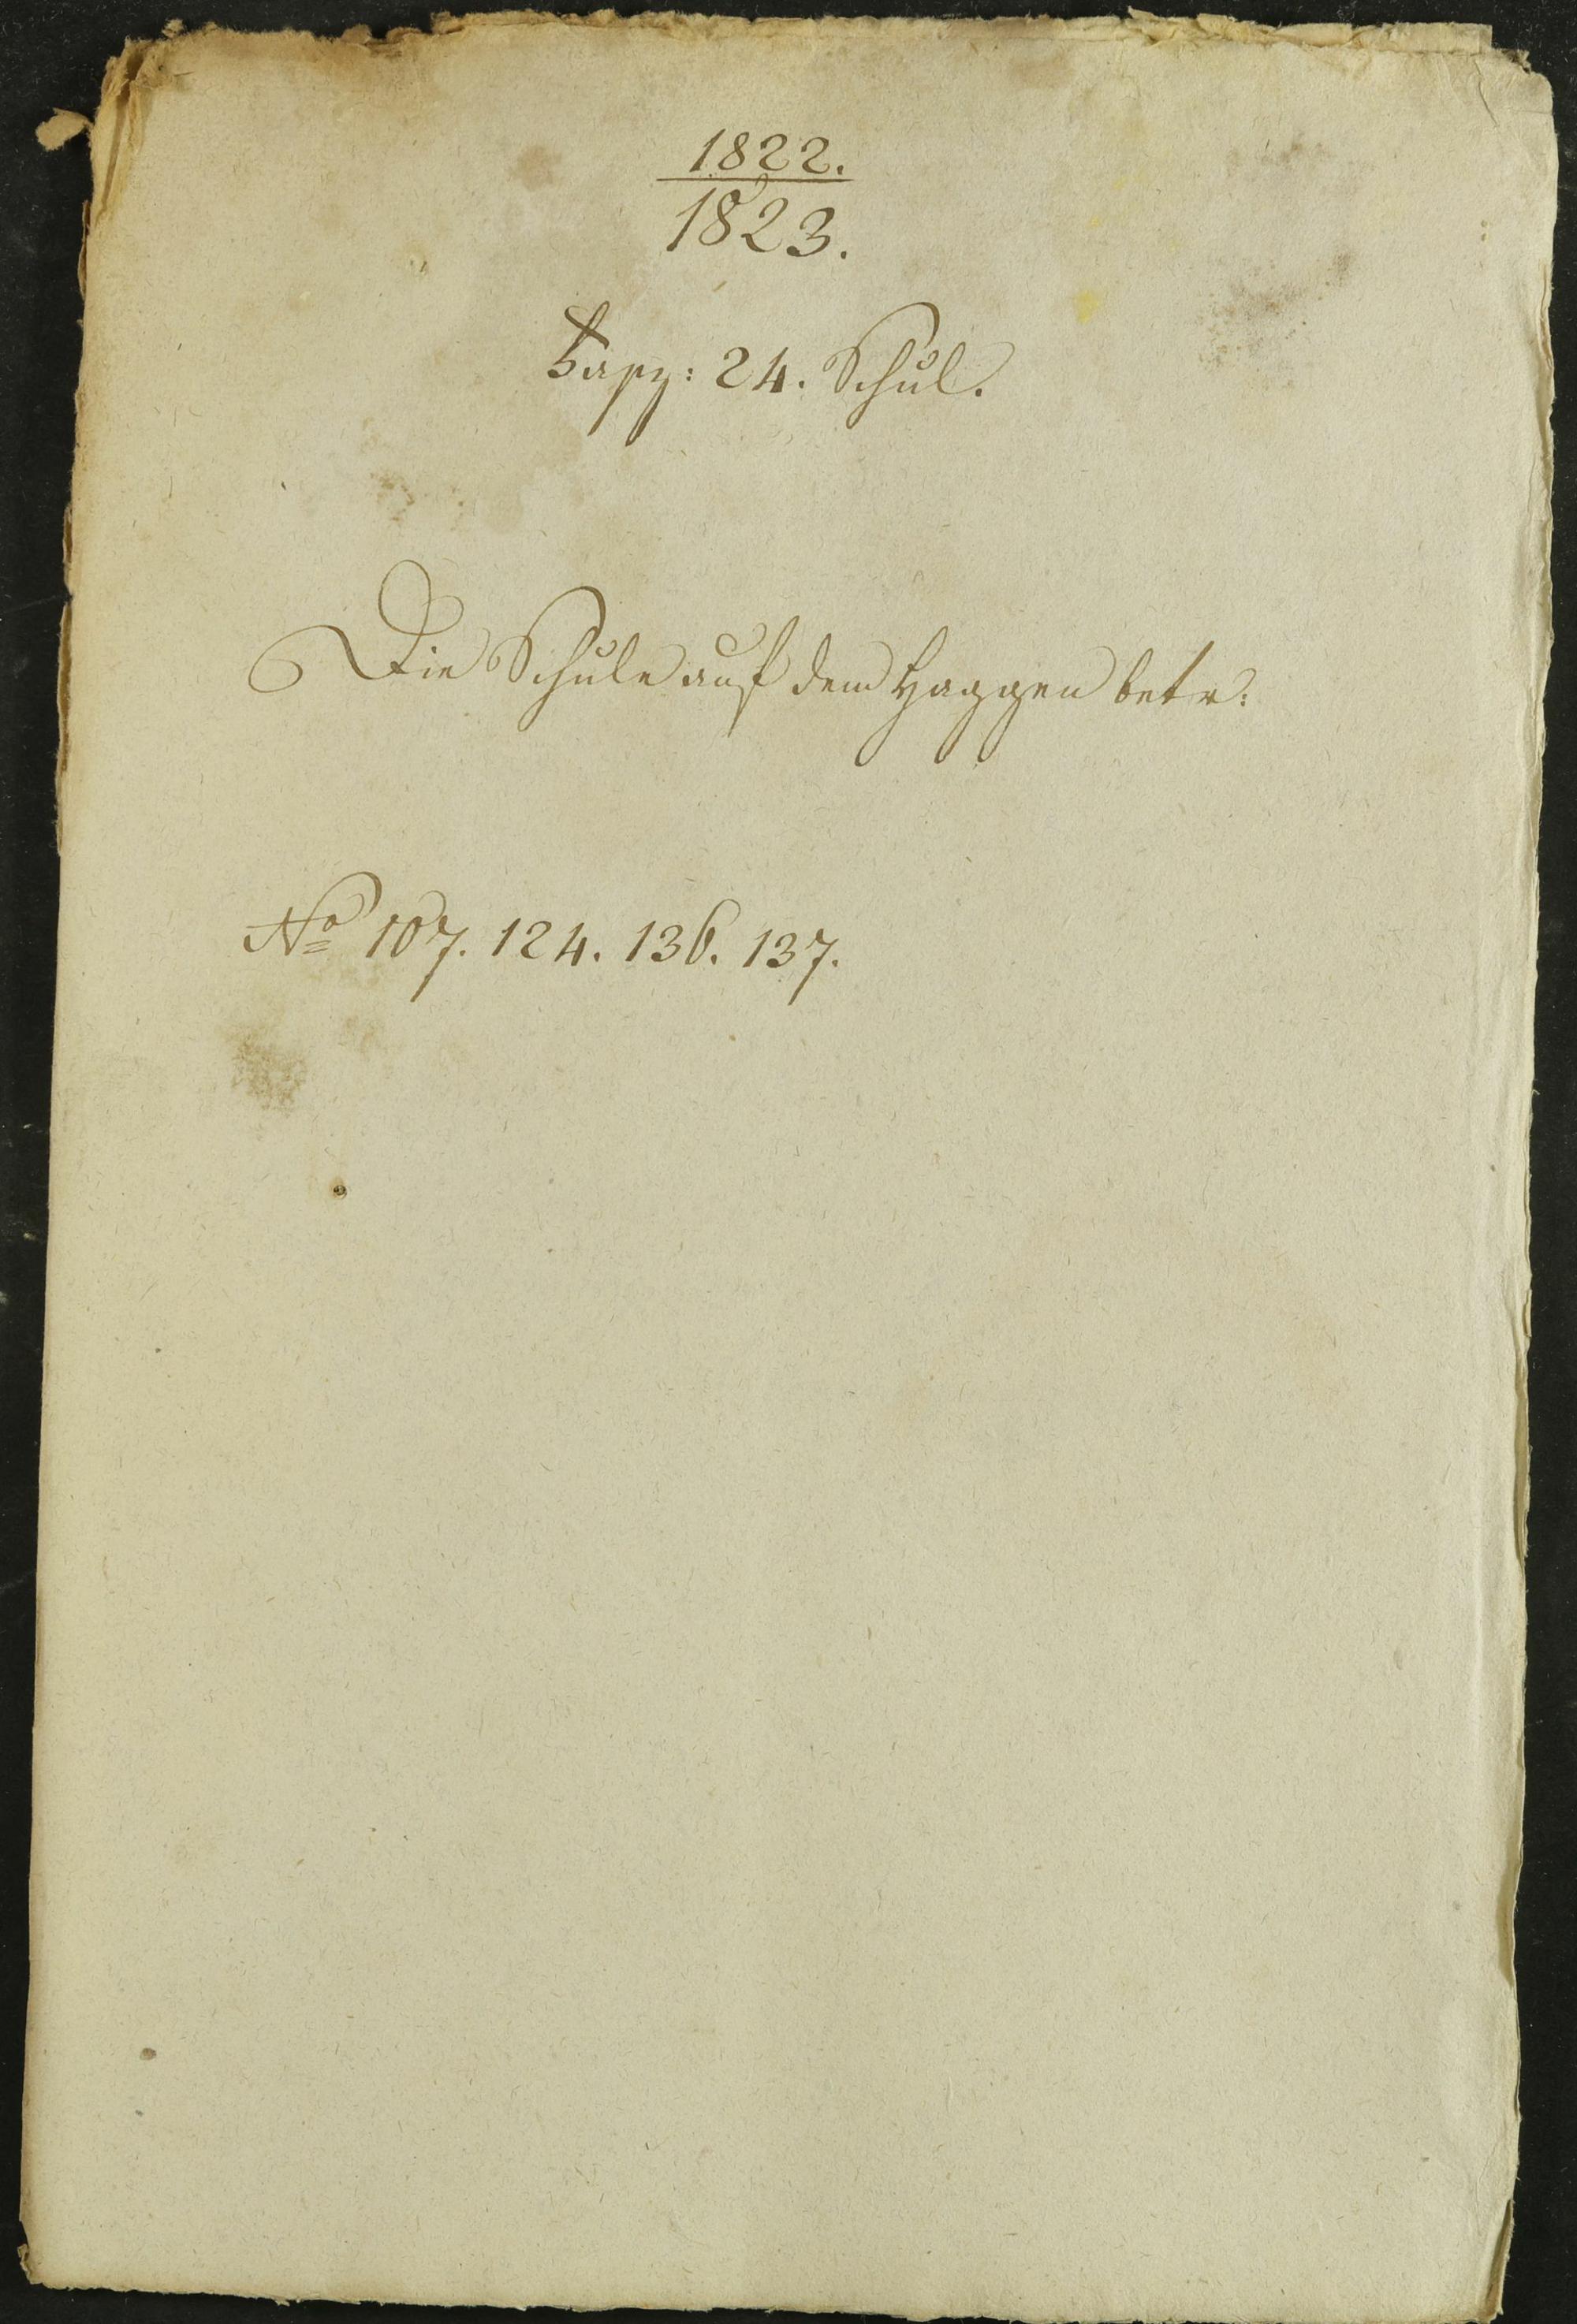 1822.
1823.
Kapp: 24. Schul.
Die Schule auf dem Haggen betr:
No 107. 124. 136. 137.